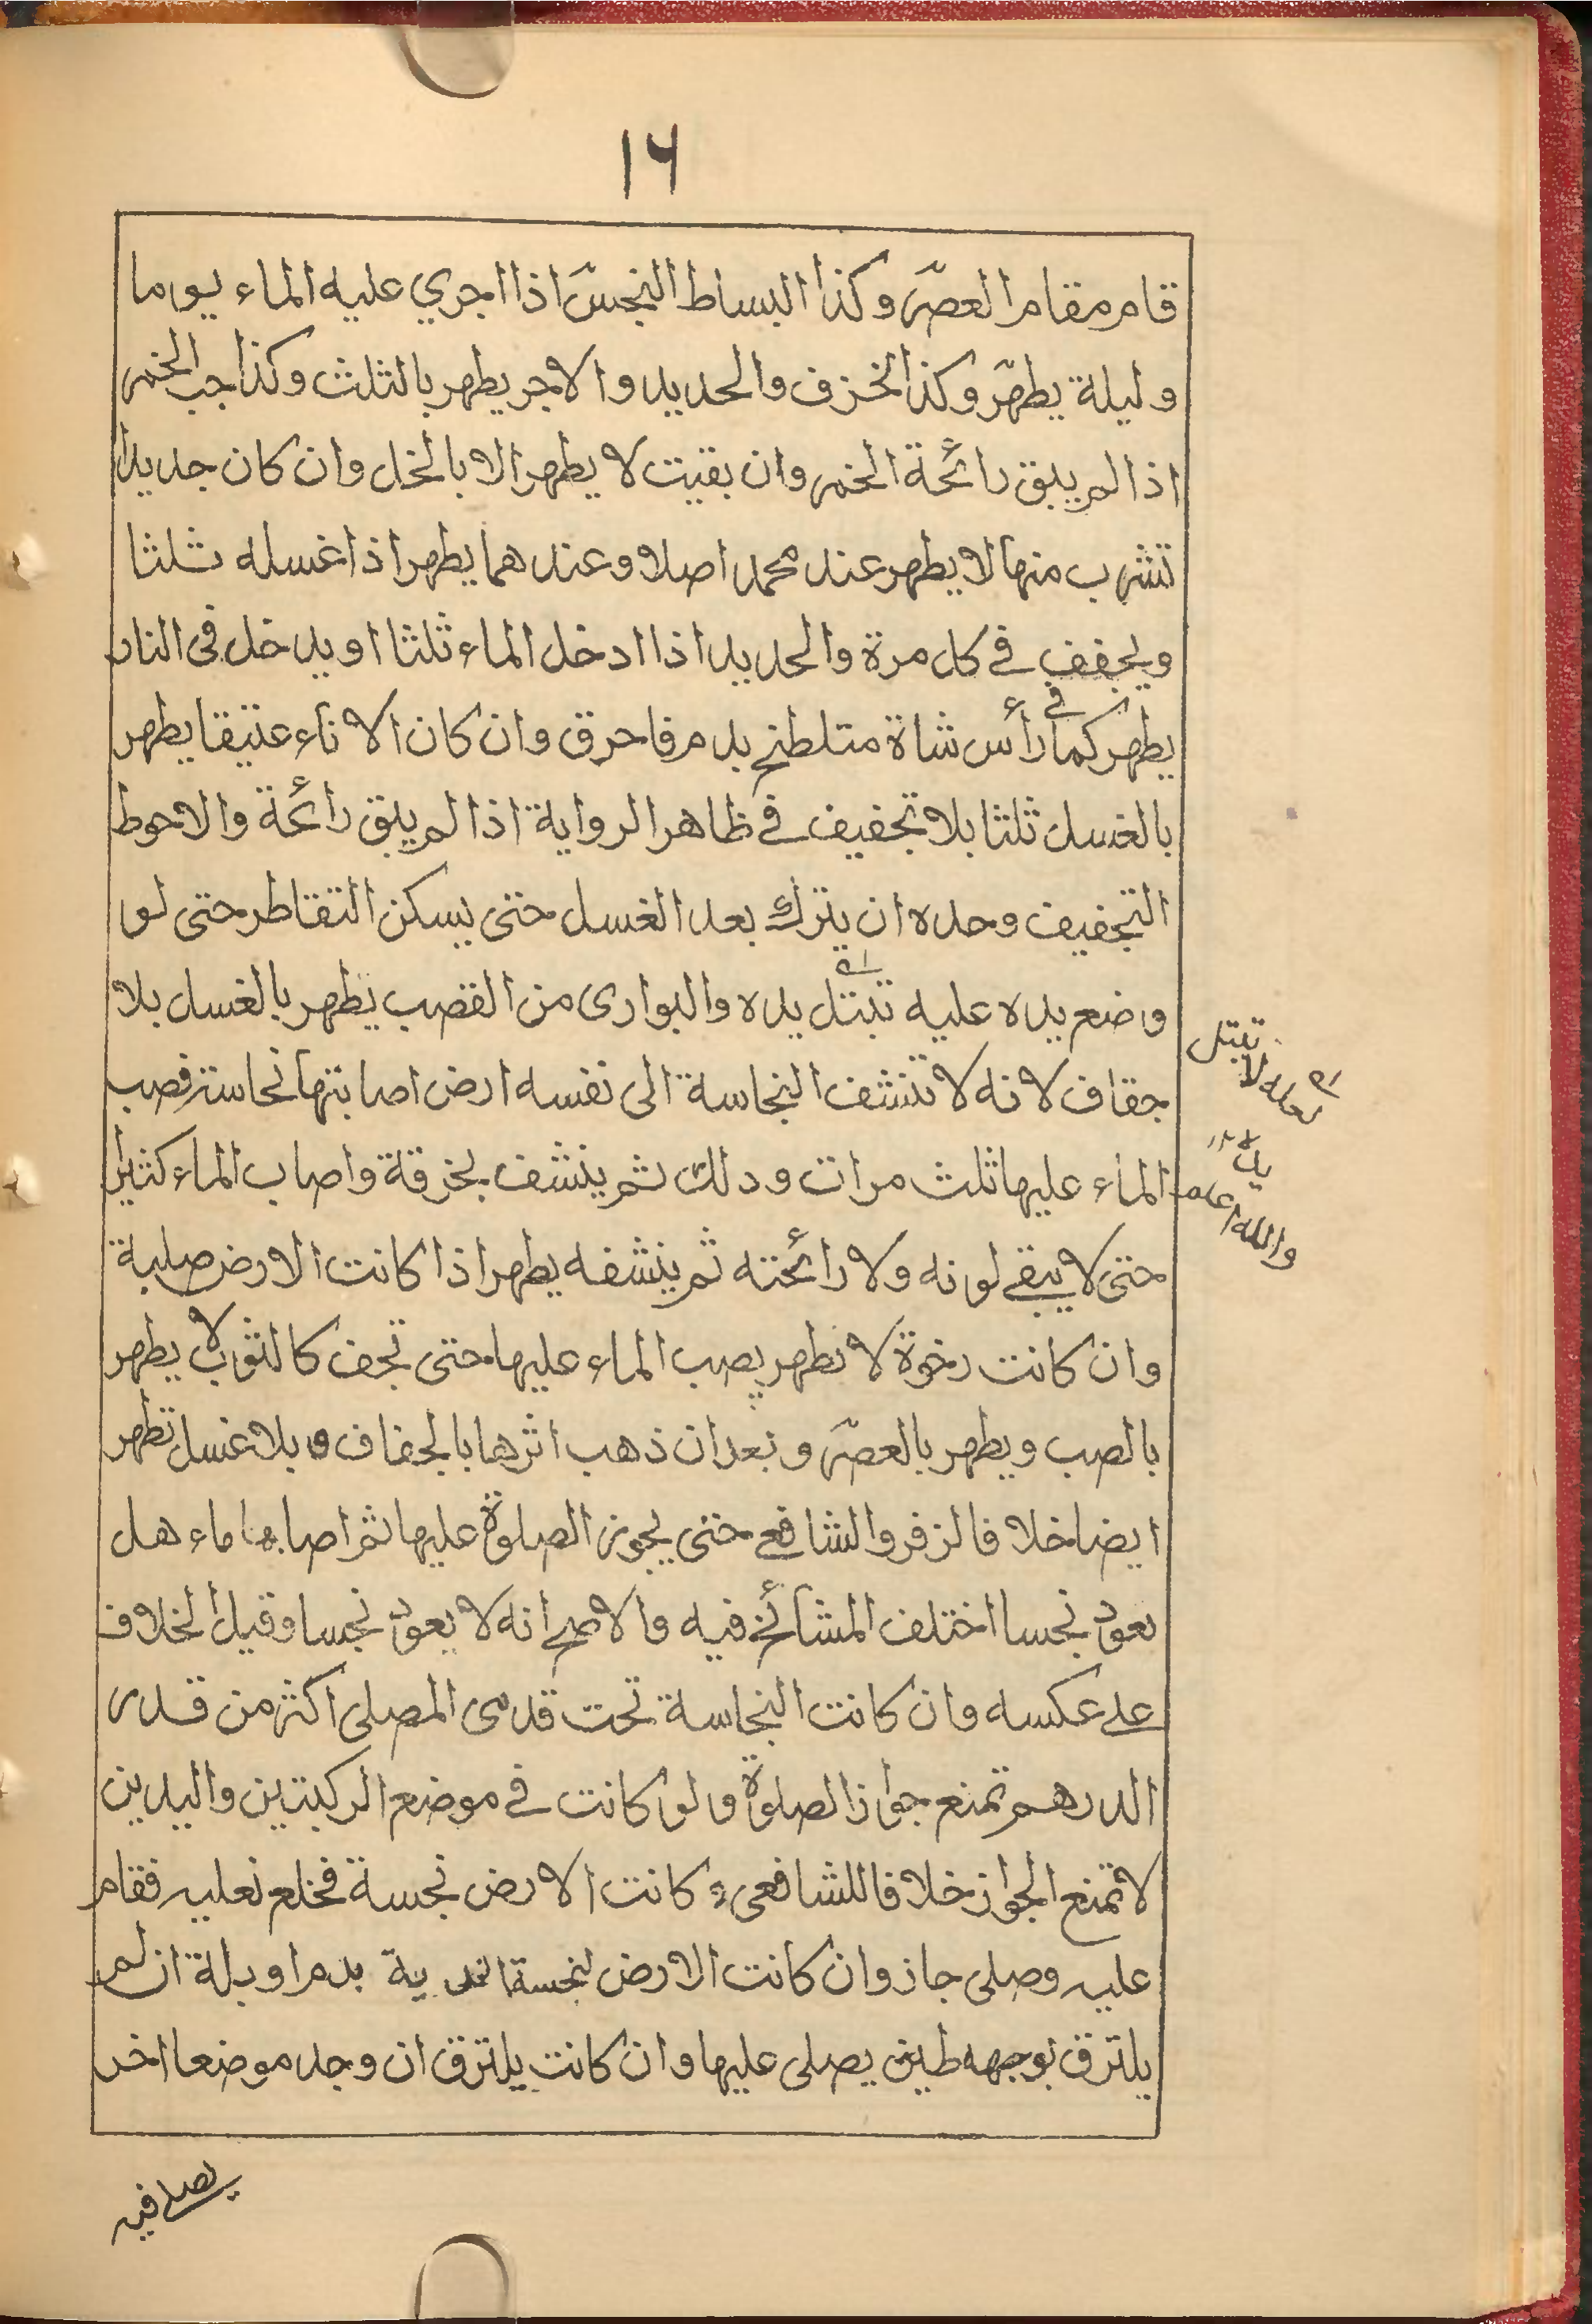 ١٦
قام مقام العصر وكذا البساط النجس اذا اجري عليه الماء يوما
وليلة يطهر وكذا الخزف والحديد والاجر يطهر بالثلث وكذا جب الخمر
اذا لم يبق رائحة الخمر وان بقيت لا يطهر الا بالخل وان كان جديدا
تشرب منها لا يطهر عند محمد اصلا وعندهما يطهر اذا غسله ثلثا
ويجفف في كل مرة والحديد اذا ادخل الماء ثلثا او يدخل فى النار
يطهر كما في رأس شاة متلطخ بدم فاحرق وان كان الاناء عتيقا يطهر
بالغسل ثلثا بلا تجفيف في ظاهر الرواية اذا لم يبق رائحة والاحوط
التجفيف وحده ان يترك بعد الغسل حتى يسكن التقاطر حتى لو
وضع يده عليه تبتل يده والبوارى من القصب يطهر بالغسل بلا
جفاف لانه لا تنشف النجاسة الى نفسه ارض اصابتها نجاسة فصب
الماء عليها ثلث مرات ودلك ثم ينشف بخرقة واصاب الماء كثيرا
حتى لا يبقے لونه ولا رائحته ثم ينشفه يطهر اذا كانت الارض صلبة
وان كانت رخوة لا تطهر يصب الماء عليها حتى تجف كالثوب لا يطهر
بالصب ويطهر بالعصر وبعد ان ذهب اثرها بالجفاف و بلا غسل تطهر
ايضا خلافا لزفر والشافعے حتى يجوز الصلوة عليها ثم اصابها ماء هل
يعود نجسا اختلف المشائخ فيه والاصح انه لا يعود نجسا وقيل الخلاف
علے عكسه وان كانت النجاسة تحت قدمى المصلى اكثر من قدر
الدرهم تمنع جواز الصلوة ولو كانت في موضع الركبتين واليدين
لا تمنع الجواز خلافا للشافعى كانت الارض نجسة فخلع نعليه فقام
عليه وصلى جاز وان كانت الارض نجسة بدم او بلة ان لم
يلتزق بوجهه طين يصلى عليها وان كانت يلتزق ان وجد موضعا اخر
تبتل
لعله لا
يده
والله اعلم
يصلے فيه